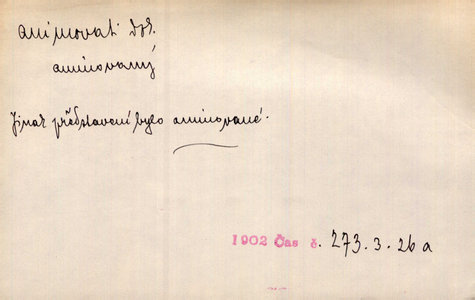 animovati dok.
animovaný
Jinak představení bylo animované.
1902 Čas č. 273. 3. 26 a